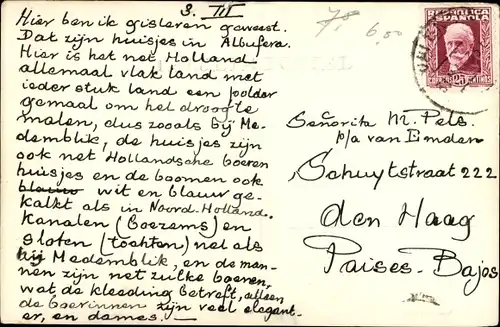 3. III
Hier ben ik gisteren geweest.
Dat zijn huisjes in Albufera.
Hier is het net Holland
allemaal vlak land met
ieder stuk land een polder
gemaal om het droog te
malen, dus zooals bij Me-
demblik, de huisjes zijn
ook net Hollandsche boeren
huisjes en de boomen ook
blauw wit en blauw ge-
kalkt als in Noord. Holland.
Kanalen (boezems) en
sloten (tochten) net als
bij Medemblik, en de man-
nen zijn net zulke boeren,
wat de kleeding betreft, alleen
de boerinnen zijn veel elegant-
er, en dames.
78
6,00
REPUBLICA
ESPAÑOLA
25
Señorita M. Pels.
p/a van Emden
Schuytstraat 222
den Haag
Paises-Bajos